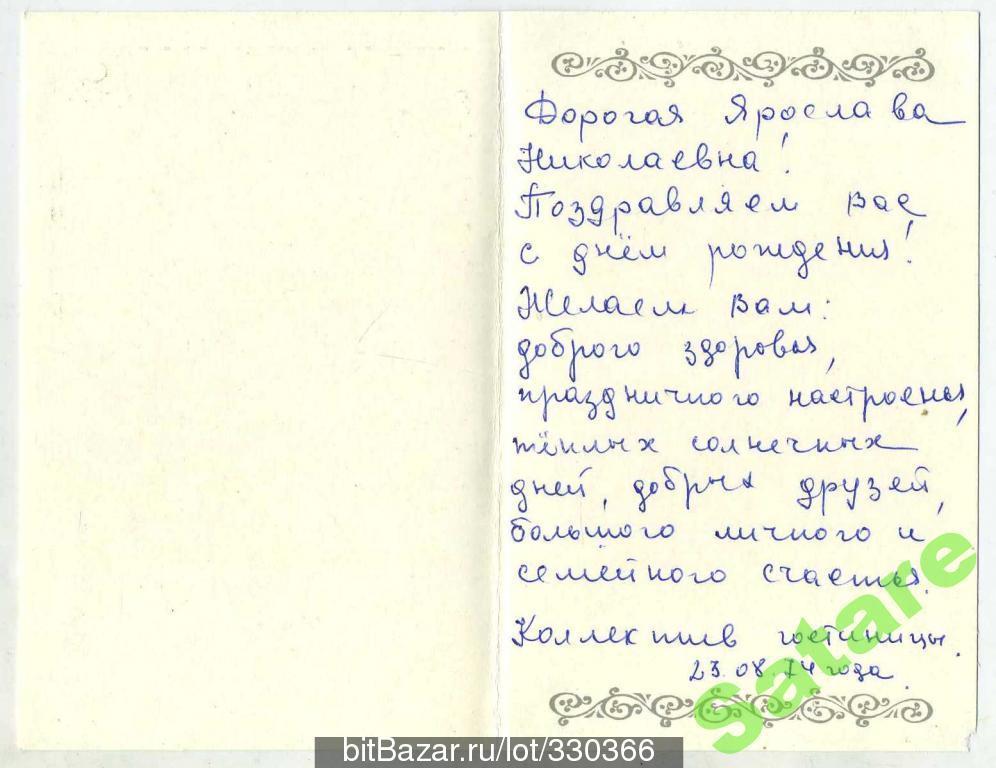 Дорогая Ярослава
Николаевна!
Поздравляем Вас
с днём рождения!
Желаем Вам:
доброго здоровья,
праздничного настроенья,
тёплых солнечных
дней, добрых друзей,
большого личного и
семейного счастья.
Коллектив гостиницы.
23.08.74 года.
Satare
bitBazar.ru/lot/330366